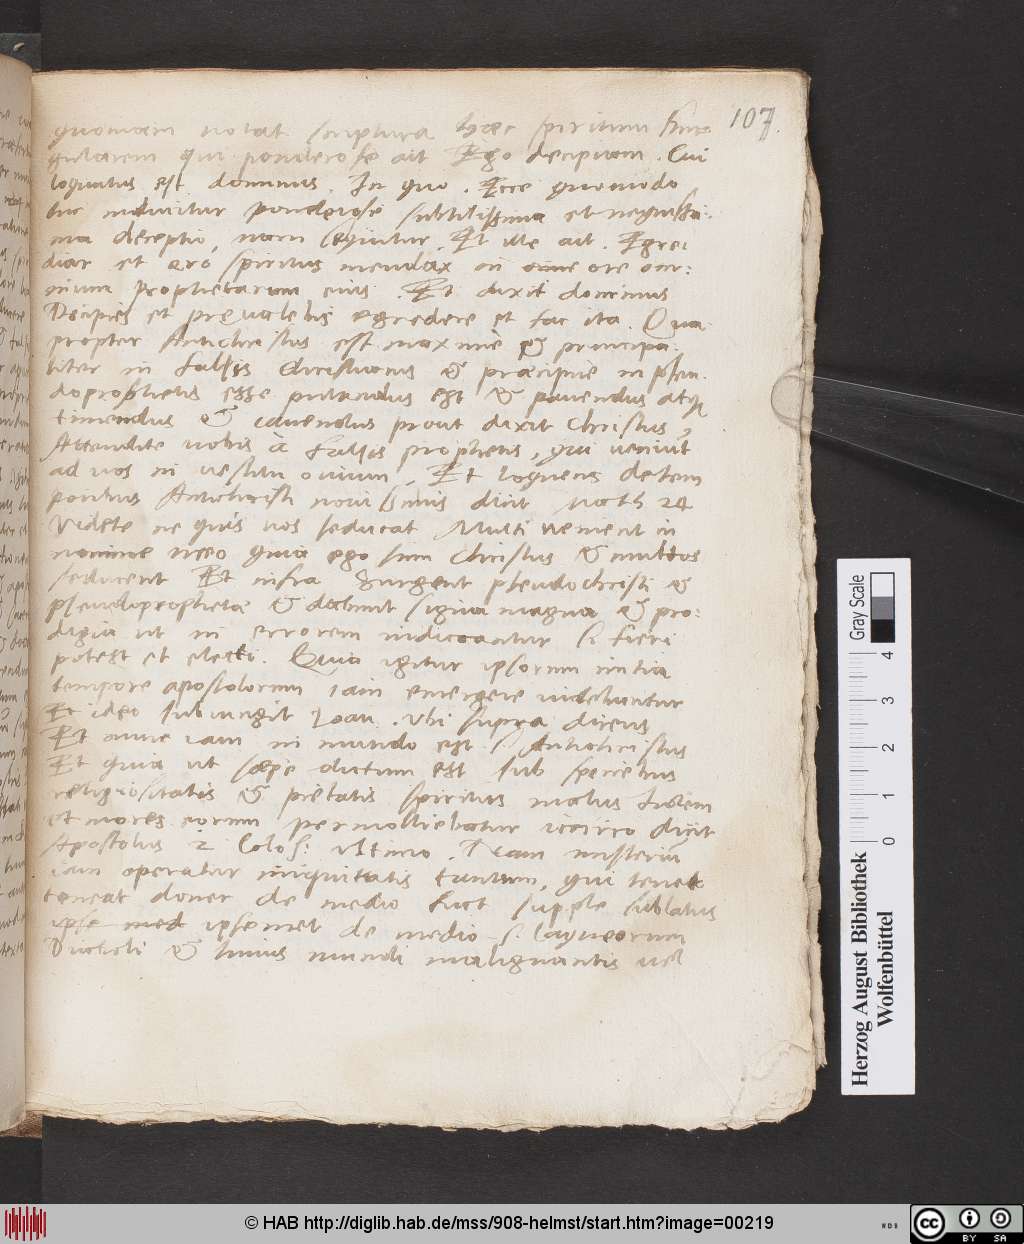 107
quoniam notat scriptura hæc spiritum sin-
gularem qui ponderose ait Ego decipiam. Cui
loquutus est dominus. In quo. Ecce quomodo
hic inducitur ponderose subtilissima et nequissi:
ma deceptio, nam sequitur. Et ille ait. Egre
diar et ero spiritus mendax in ore om:
nium prophetarum eius. Et dixit dominus
Decipies et prevalebis egredere et fac ita. Qua
propter Antichristus est maxime & principa:
liter in falsis Christianis & præcipue in pseu.
doprophetis esse putandus est & pavendus atq
timendus & cavendus prout dixit Christus,
Attendite vobis à falsis prophetis, qui veniut
ad vos in vestitu ovium. Et loquens de tem
poribus Antichristi novissimis dicit Math 24
Videte ne quis vos seducat Multi venient in
nomine meo quia ego sum Christus & multos
seducent Et infra Surgent pseudochristi &
pseudoprophetæ & dabunt signa magna & pro:
digia ut in errorem inducantur si fieri
potest et electi. Quia igitur ipsorum initia
tempore apostolorum iam emergere videbuntur
Et ideo subiungit Ioan. ubi supra dicens
Et nunc iam in mundo est s Antichristus
Et quia ut sæpe dictum est sub speciebus
religiositatis & pietatis spiritus malus fidem
et mores eorum permolliebatur iccirco dicit
Apostolus 2 Colos: ultimo. Nam misteriu
iam operatur iniquitatis tantum, qui tenet
teneat donec de medio fiat supple sublatus
ipse med ipsemet de medio s. laqueorum
Diaboli & huius mundi malignantis vel
Gray Scale
0 1 2 3 4
Herzog August Bibliothek
Wolfenbüttel
© HAB http://diglib.hab.de/mss/908-helmst/start.htm?image=00219
WDB
cc BY SA